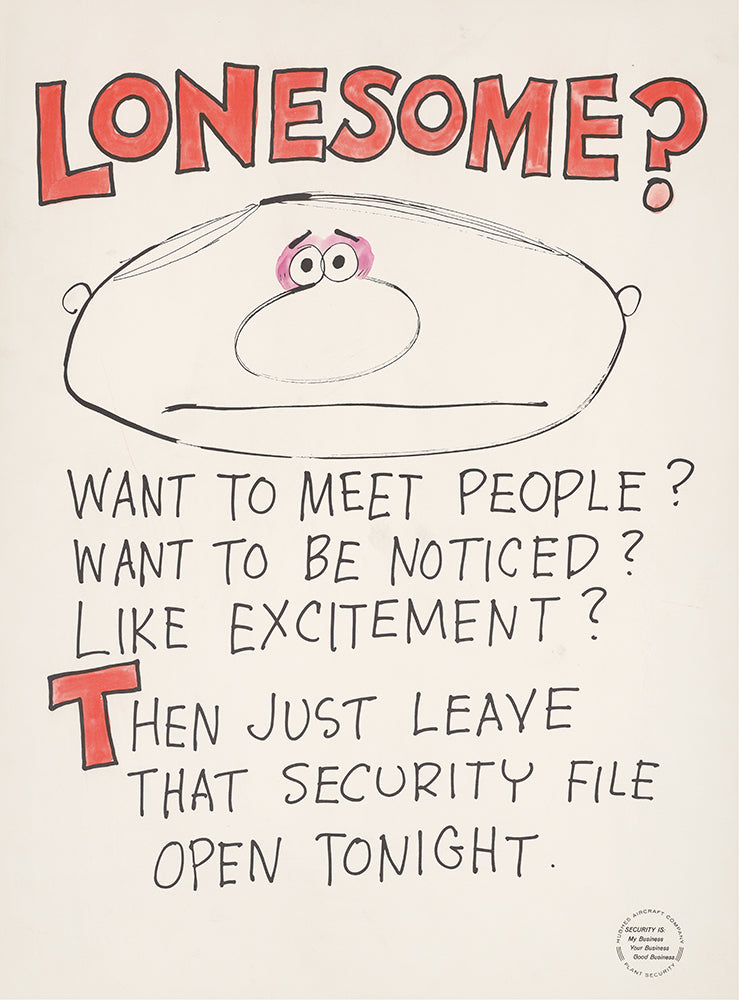 LONESOME?
WANT TO MEET PEOPLE?
WANT TO BE NOTICED?
LIKE EXCITEMENT?
THEN JUST LEAVE
THAT SECURITY FILE
OPEN TONIGHT.
HUGHES AIRCRAFT COMPANY
SECURITY IS:
My Business
Your Business
Good Business
PLANT SECURITY